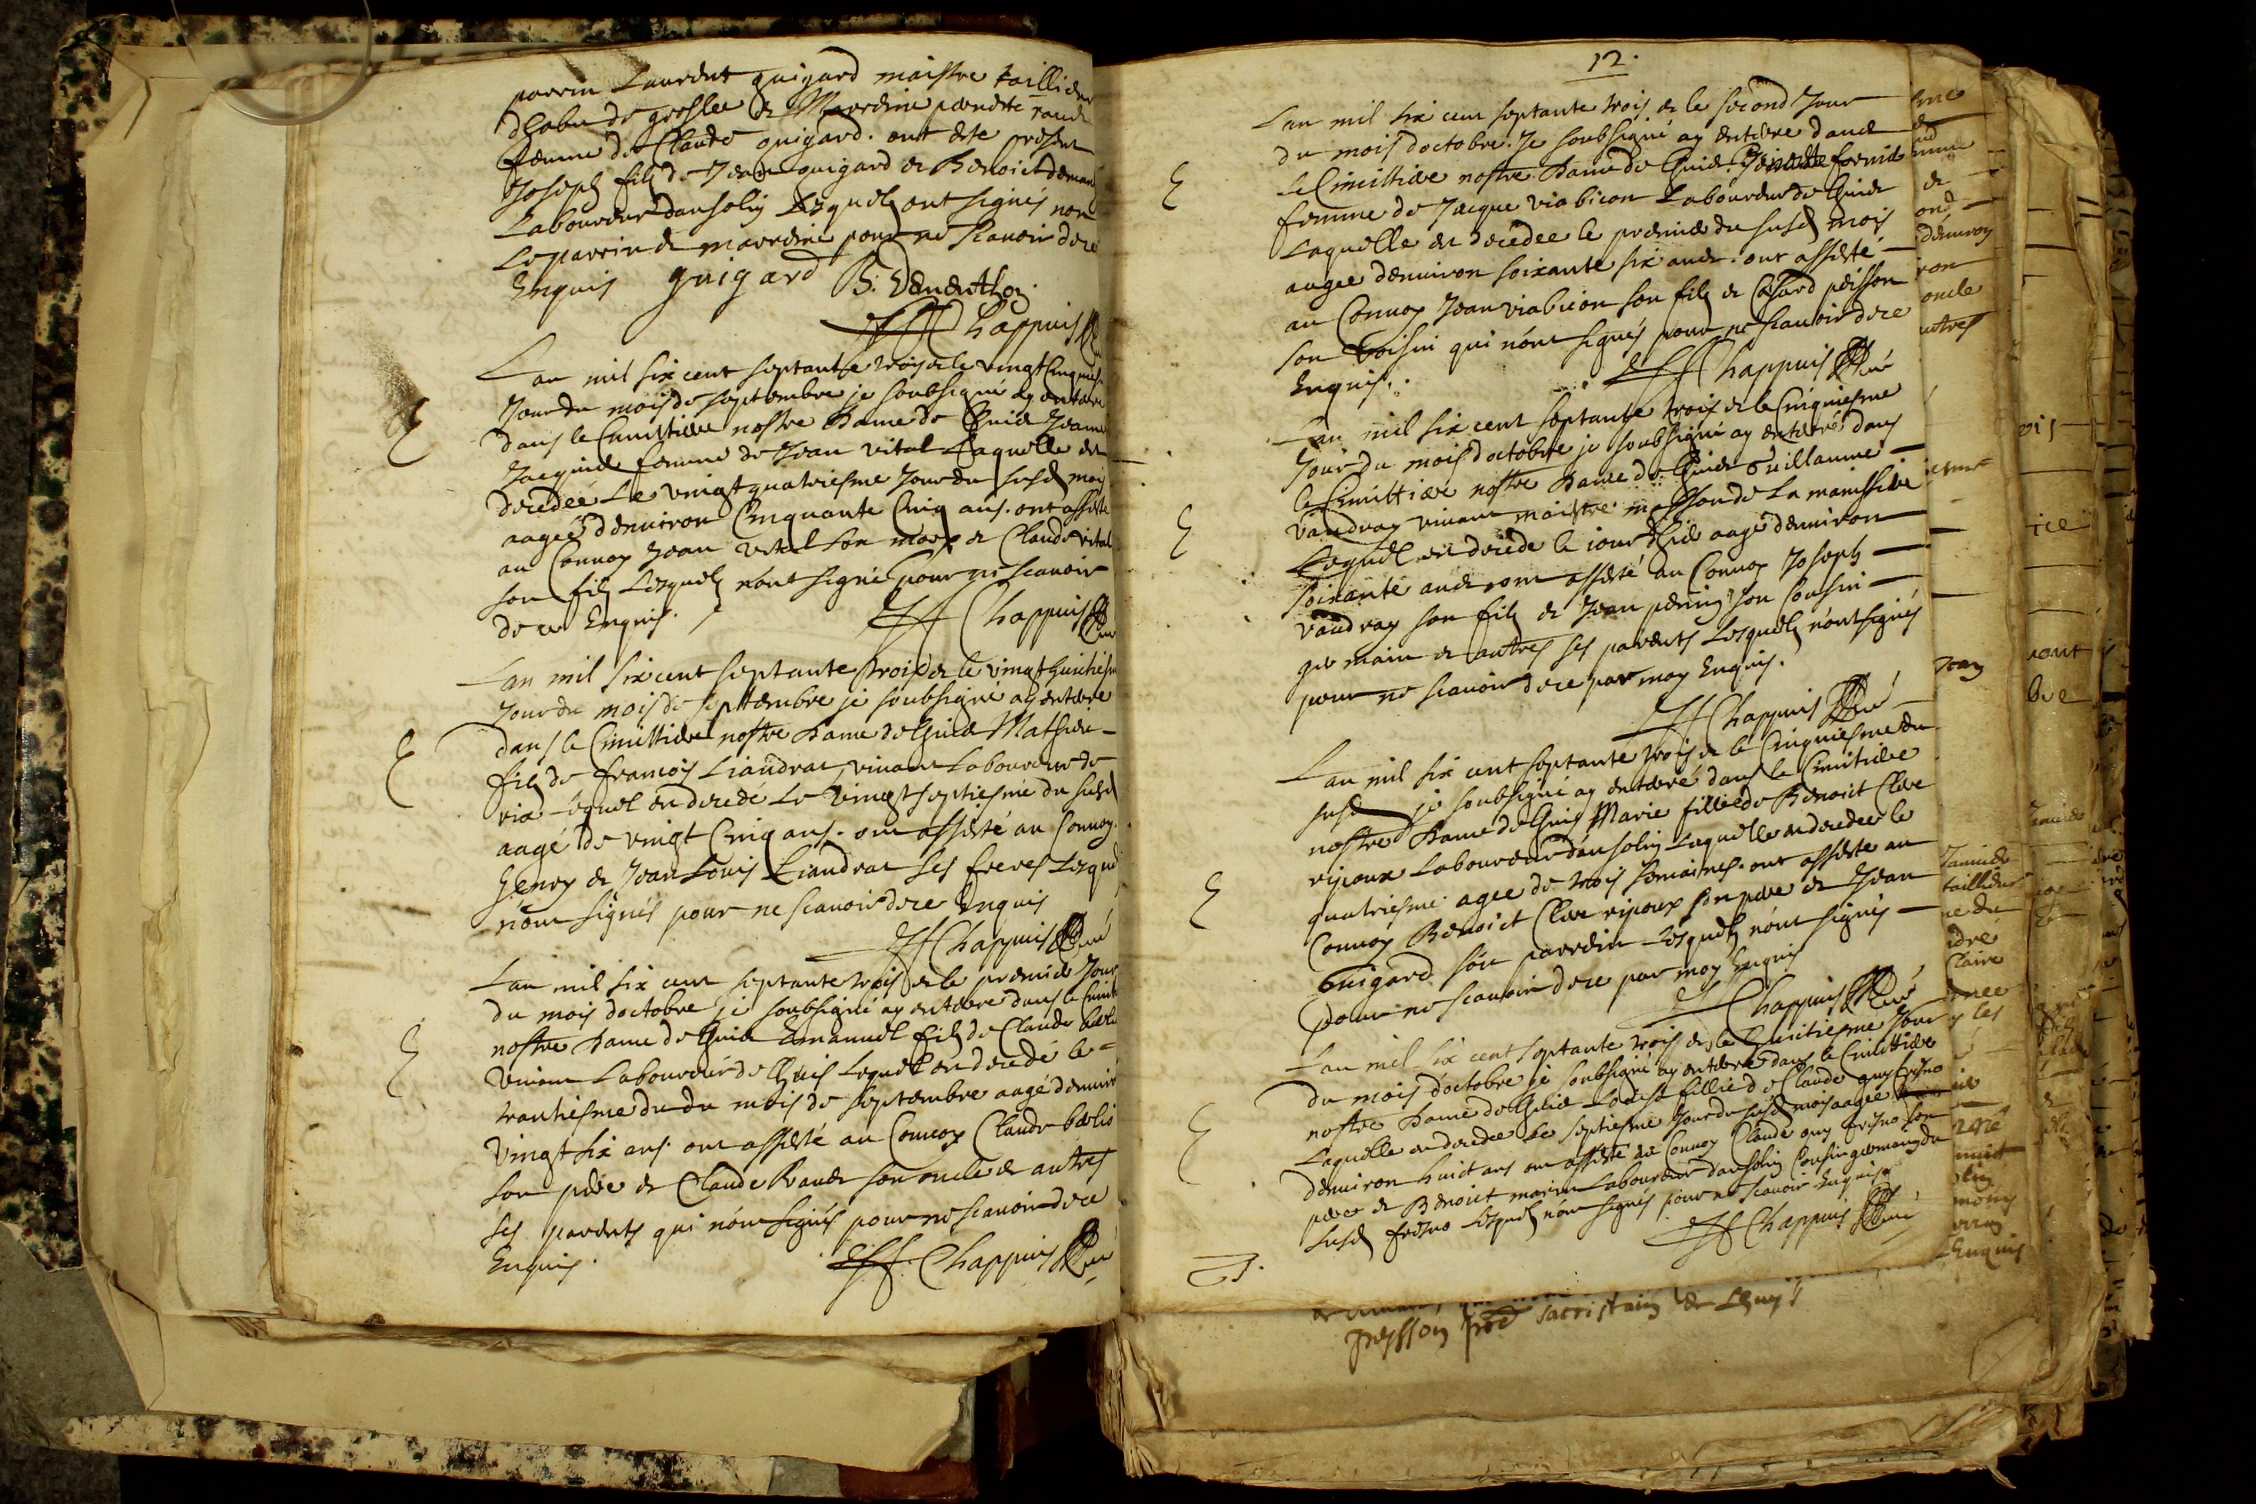 parrin Laurent guigard maistre taillieur
dhabi de groslee et Marreine pernete rande
femme de Claude guigard. ont este present
Joseph filz de Jean guigard et Benoict
Laboureur dansolin Lesquelz ont signés non
le parrin et marreine pour ne scavoir dece
Enquis guigard B:
Chappuis Curé
Lan mil six cent septante trois et le vingt Cinquies
Jour du mois de septembre je soubsigné ay enterre
dans le Cimittiere nostre dame de Lhuis Jeanne
femme de Jean vital Laquelle est
decedeé Le vingt quatriesme Jour du susd mois
aageé denviron Cinquante Cinq ans. ont assisté
au Convoy Jean vital son mary et Claude vital
son filz Lesquelz n'ont signé pour ne scavoir
de ce Enquis.
Chappuis Curé
Lan mil six cent septante trois et le vingt huictiesme
Jour du mois de septtembre je soubsigné ay enterre
dans le Cimittiere nostre dame de Lhuis Mathieu
filz de francois Liaudrat, vivant Laboureur de
rix Lequel est decedé Le vingt septiesme du susd
aagé de vingt Cinq ans. ont assisté au Convoy
henry et Jean Louis Liaudrat ses freres Lesquelz
n'ont signés pour ne scavoir dece Enquis
Chappuis Curé
Lan mil six cent septante trois et le premier Jour
du mois doctobre je soubsigné ay enterre dans le Cimitt
nostre dame de Lhuis Emanuel filz de Claude
vivant Laboureur de Lhuis Lequel est decedé le
trantiesme du du mois de septembre aagé denviron
vingt six ans. ont assisté au Convoy Claude
son pere et Claude Rande son oncle et autres
ses parents qui n'ont signés pour ne scavoir dece
Enquis.
Chappuis Curé
12.
Lan mil six cent septante trois et le second Jour
du mois doctobre. Je soubsigné ay enterre dans
le Cimittiere nostre dame de Lhuis
femme de Jacque viabicon Laboureur de Lhuis
Laquelle est decedee le premier du susd mois
aagee denviron soixante six ans. ont assisté
au Convoy Jean viabicon son filz et Cesard peisson
son voisin qui n'ont signés pour ne scavoir dece
Enquis.
Chappuis Curé
Lan mil six cent septante trois et le Cinquiesme
Jour du mois doctobre je soubsigné ay enterré dans
le Cimittiere nostre dame de Lhuis Guillaume
vaudray vivant maistre masson de La manissiere
Lequel est decede le jour dhier aagé denviron
soixante ans ont assisté au Convoy Joseph
vaudray son filz et Jean perrin son Cousin
germain et autres ses parents Lesquelz n'ont signés
pour ne scavoir dece par moy Enquis.
Chappuis Curé
Lan mil six cent septante trois et le Cinquiesme du
susd je soubsigné ay enterré dans le Cimitiere
nostre dame de Lhuis Marie fillie de Benoict Clere
ripoux Laboureur dansolin Laquelle est decedee le
quatriesme agee de trois semaines. ont assiste au
Convoy Benoict Clere ripoux son pere et Jean
Guigard son parrein Lesquelz n'ont signés
pour ne scavoir dece par moy Enquis
Chappuis Curé
Lan mil six cent septante trois et le huictiesme Jour
du mois d'octobre je soubsigné ay enterré dans le Cimittiere
nostre dame de Lhuis Louise fillie de Claude guy fresno
Laquelle est decedee Le septiesme Jour du susd mois aagee
denviron huict ans ont assisté au Convoy Claude guy fresno son
pere et Benoict marin Laboureur dansolin Cousin germain du
susd fresno Lesquelz n'ont signés pour ne scavoir Enquis
Chappuis Curé
peysson sacristain de Lhuys